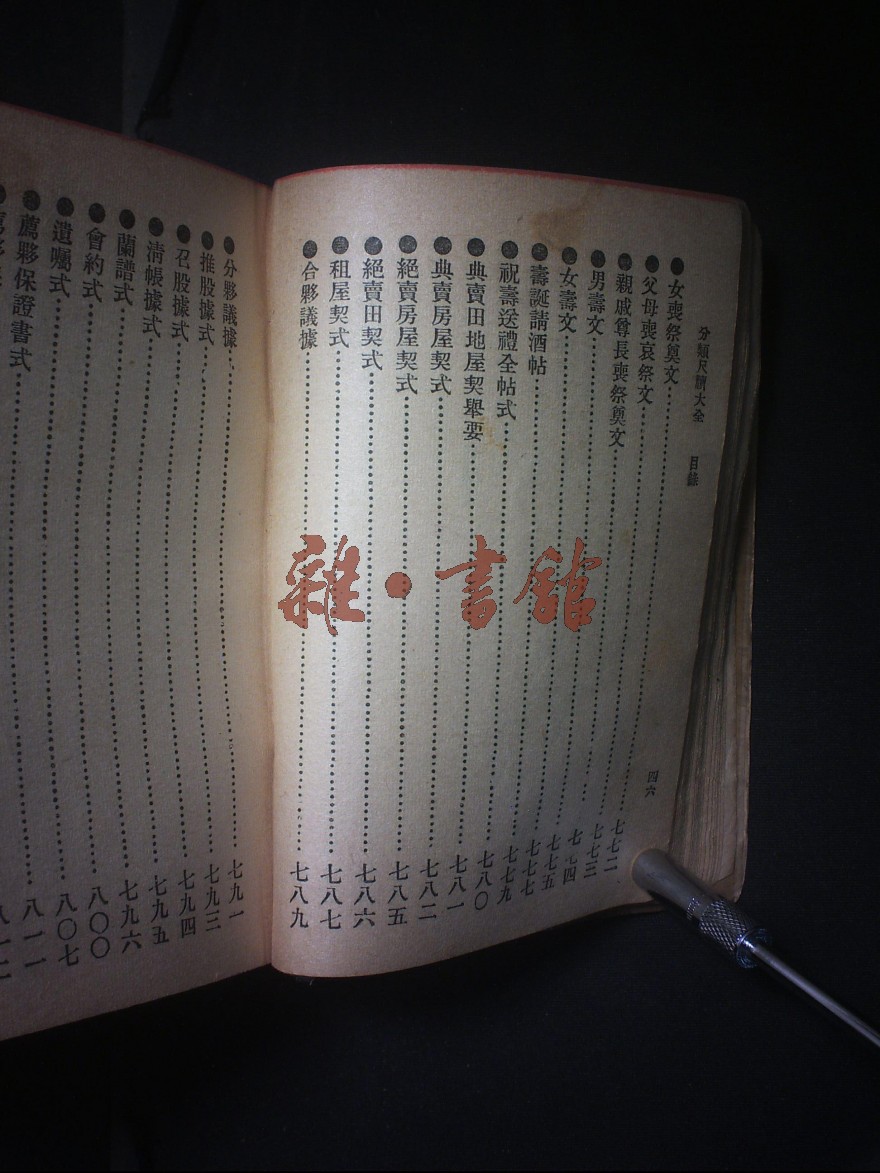 分類尺牘大全 目錄 四六
女喪祭奠文
父母喪哀祭文
親戚尊長喪祭奠文 七七二
男壽文 七七三
女壽文 七七四
壽誕請酒帖 七七五
祝壽送禮全帖式 七七九
典賣田地屋契舉要 七八〇
典賣房屋契式 七八一
絕賣房屋契式 七八二
絕賣田契式 七八五
租屋契式 七八七
合夥議據 七八九
分夥議據 七九一
推股據式 七九三
召股據式 七九四
清帳據式 七九五
蘭譜式 七九六
會約式 八〇〇
遺囑式 八〇七
薦夥保證書式 八一一
雜·書館